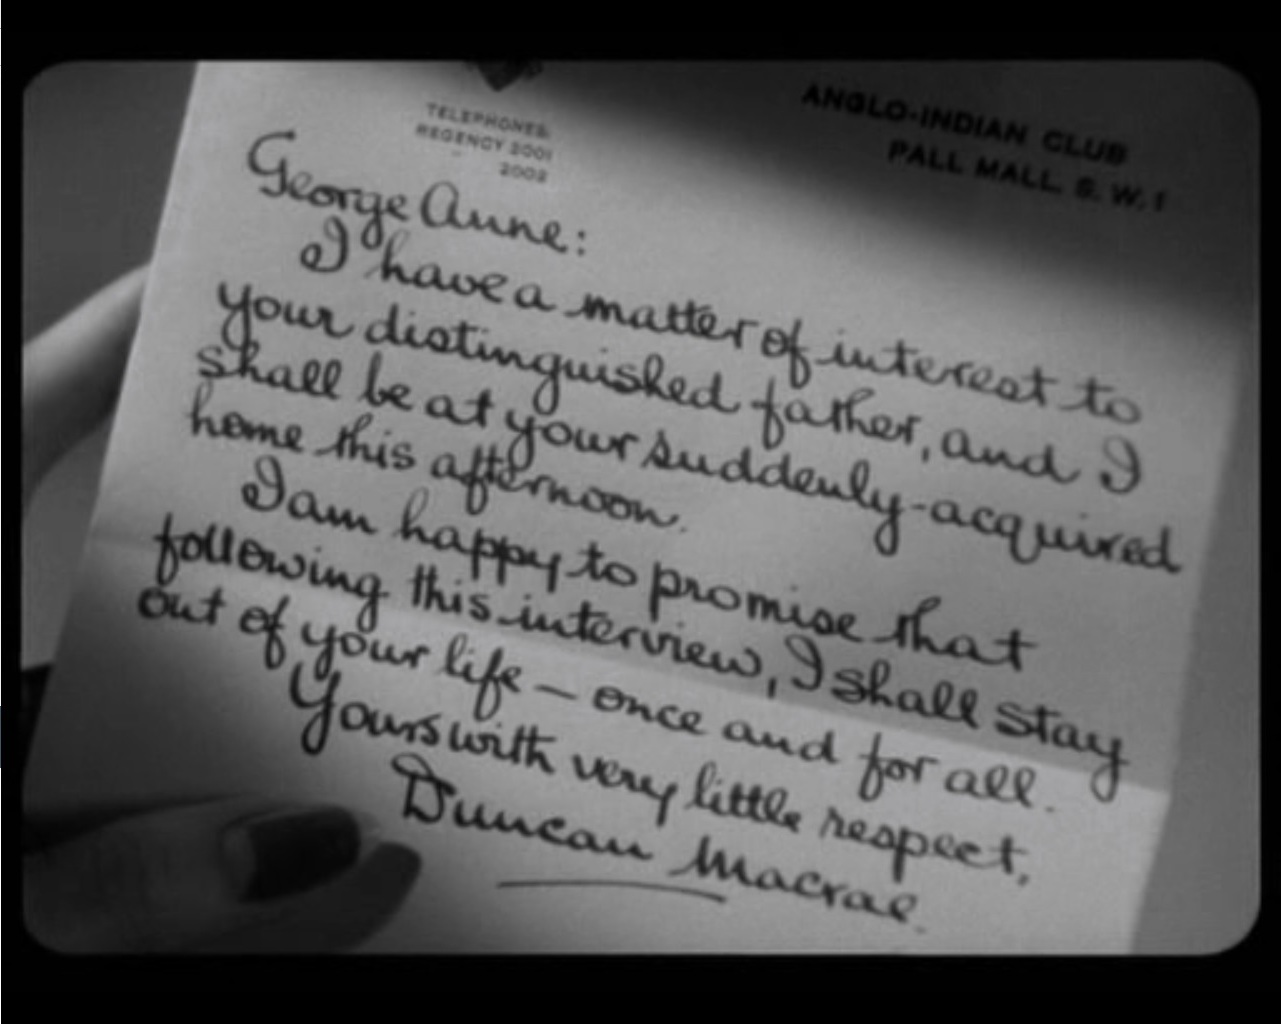 ANGLO-INDIAN CLUB
PALL MALL. S. W. 1
TELEPHONES:
REGENCY 2001
2002
George Anne:
I have a matter of interest to
your distinguished father, and I
shall be at your suddenly-acquired
home this afternoon.
I am happy to promise that
following this interview, I shall stay
out of your life — once and for all.
Yours with very little respect,
Duncan Macrae.